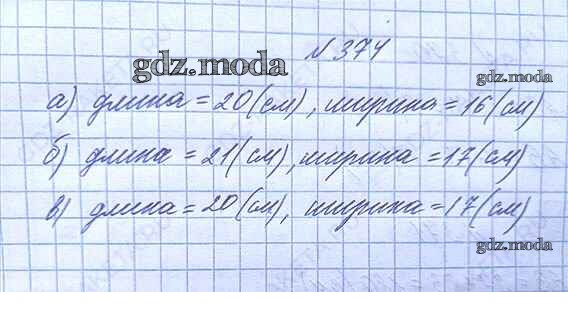 N 374
gdz.moda
gdz.moda
а) длина = 20 (см), ширина = 16 (см)
б) длина = 21 (см), ширина = 17 (см)
в) длина = 20 (см), ширина = 17 (см)
gdz.moda